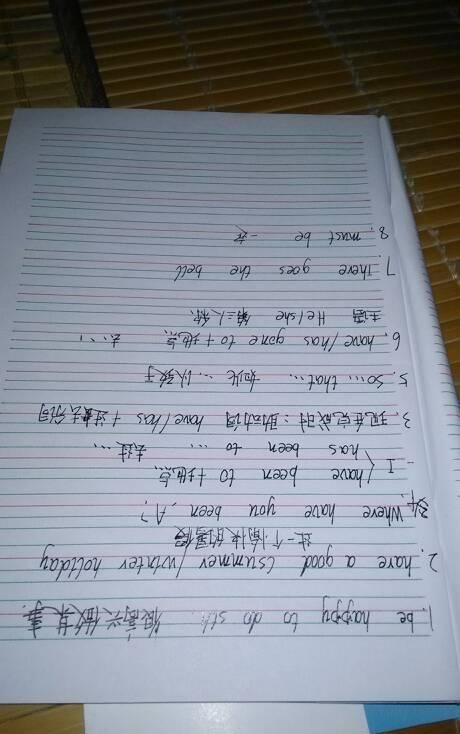 1. be happy to do sth. 很高兴做某事.
2. have a good (summer / winter holiday
过一个愉快的暑假
Where have you been, A?
- I { have been to + 地点
has been to ... 去过 ...
3. 现在完成时: 助动词 have/has + 过去分词
5. So ... that ... 如此 ... 以致于
6. have/has gone to + 地点 去 ...
主语 He/she 第三人称
7. There goes the bell
8. must be 一定